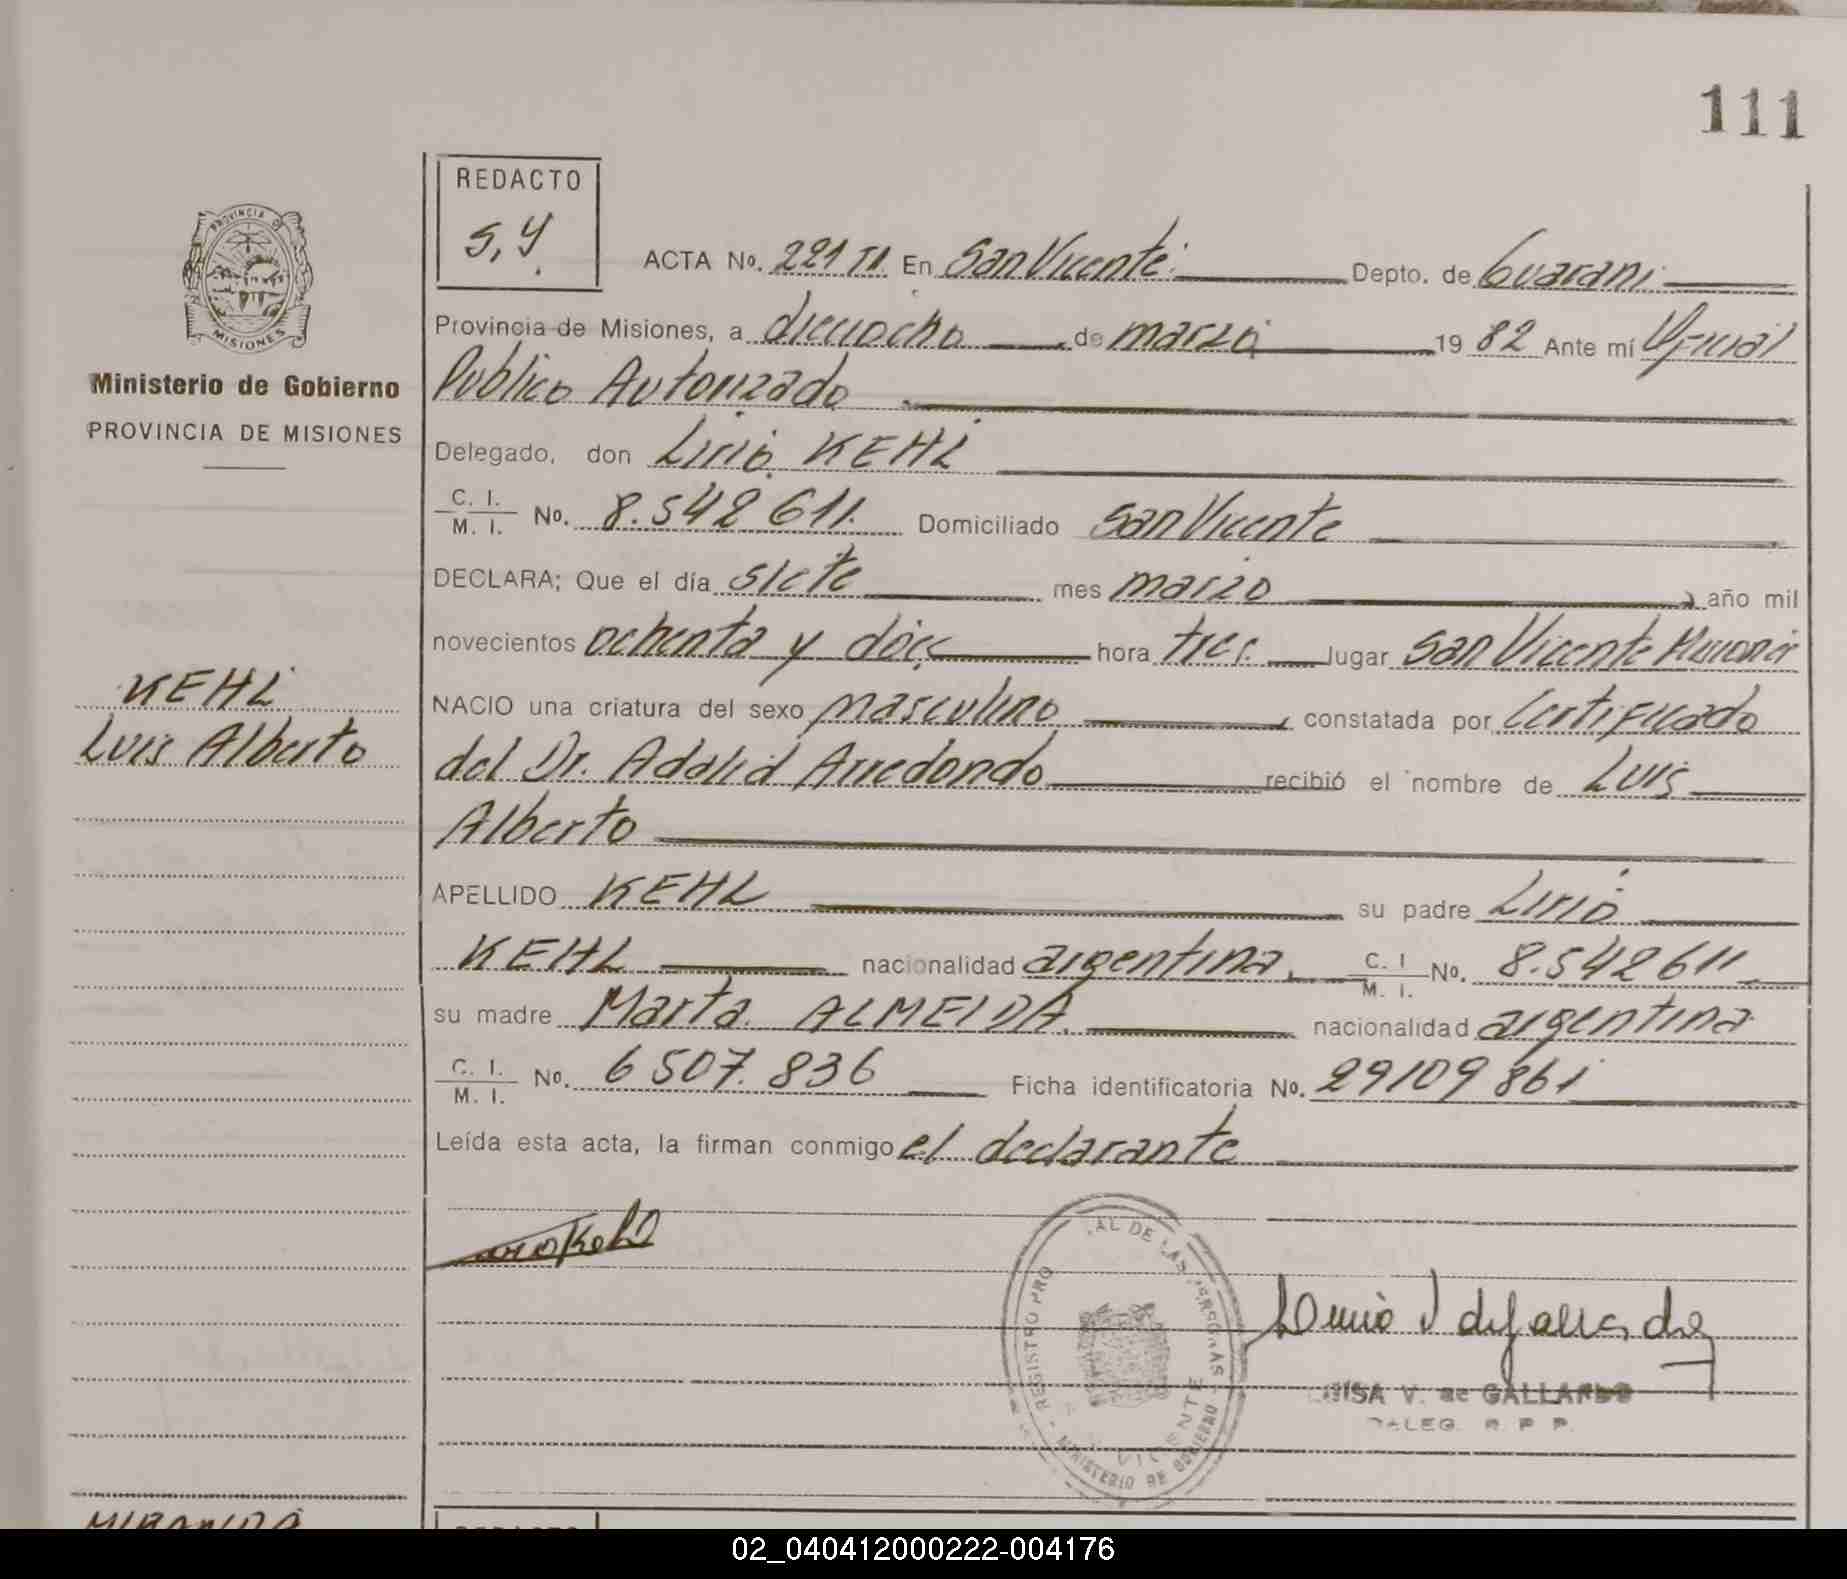 111
REDACTO
S, Y.
ACTA No. 221 T1 En San Vicente Depto. de Guarani
PROVINCIA DE
MISIONES
Provincia de Misiones, a dieciocho de marzo 19 82 Ante mí Oficial
Ministerio de Gobierno
Publico Autorizado
PROVINCIA DE MISIONES
Delegado, don Lirio KEHL
C. I.
M. I. No. 8.542 611. Domiciliado San Vicente
DECLARA; Que el día siete mes marzo año mil
novecientos ochenta y dos hora tres lugar San Vicente Misiones
KEHL
NACIO una criatura del sexo masculino constatada por Certificado
Luis Alberto
del Dr. Adalid Arredondo recibió el nombre de Luis
Alberto
APELLIDO KEHL su padre Lirio
KEHL nacionalidad argentina, C. I M. I. No. 8.542 611
su madre Marta ALMEIDA nacionalidad argentina
C. I. M. I. No. 6 507. 836 Ficha identificatoria No. 29109 861
Leída esta acta, la firman conmigo el declarante
REGISTRO PRO AL DE LAS PERSONAS
VICENTE
MINISTERIO DE GOBIERNO
LUISA V. de GALLARDO
DALEG. R. P. P.
MIRANDA
REDACTO
02_040412000222-004176